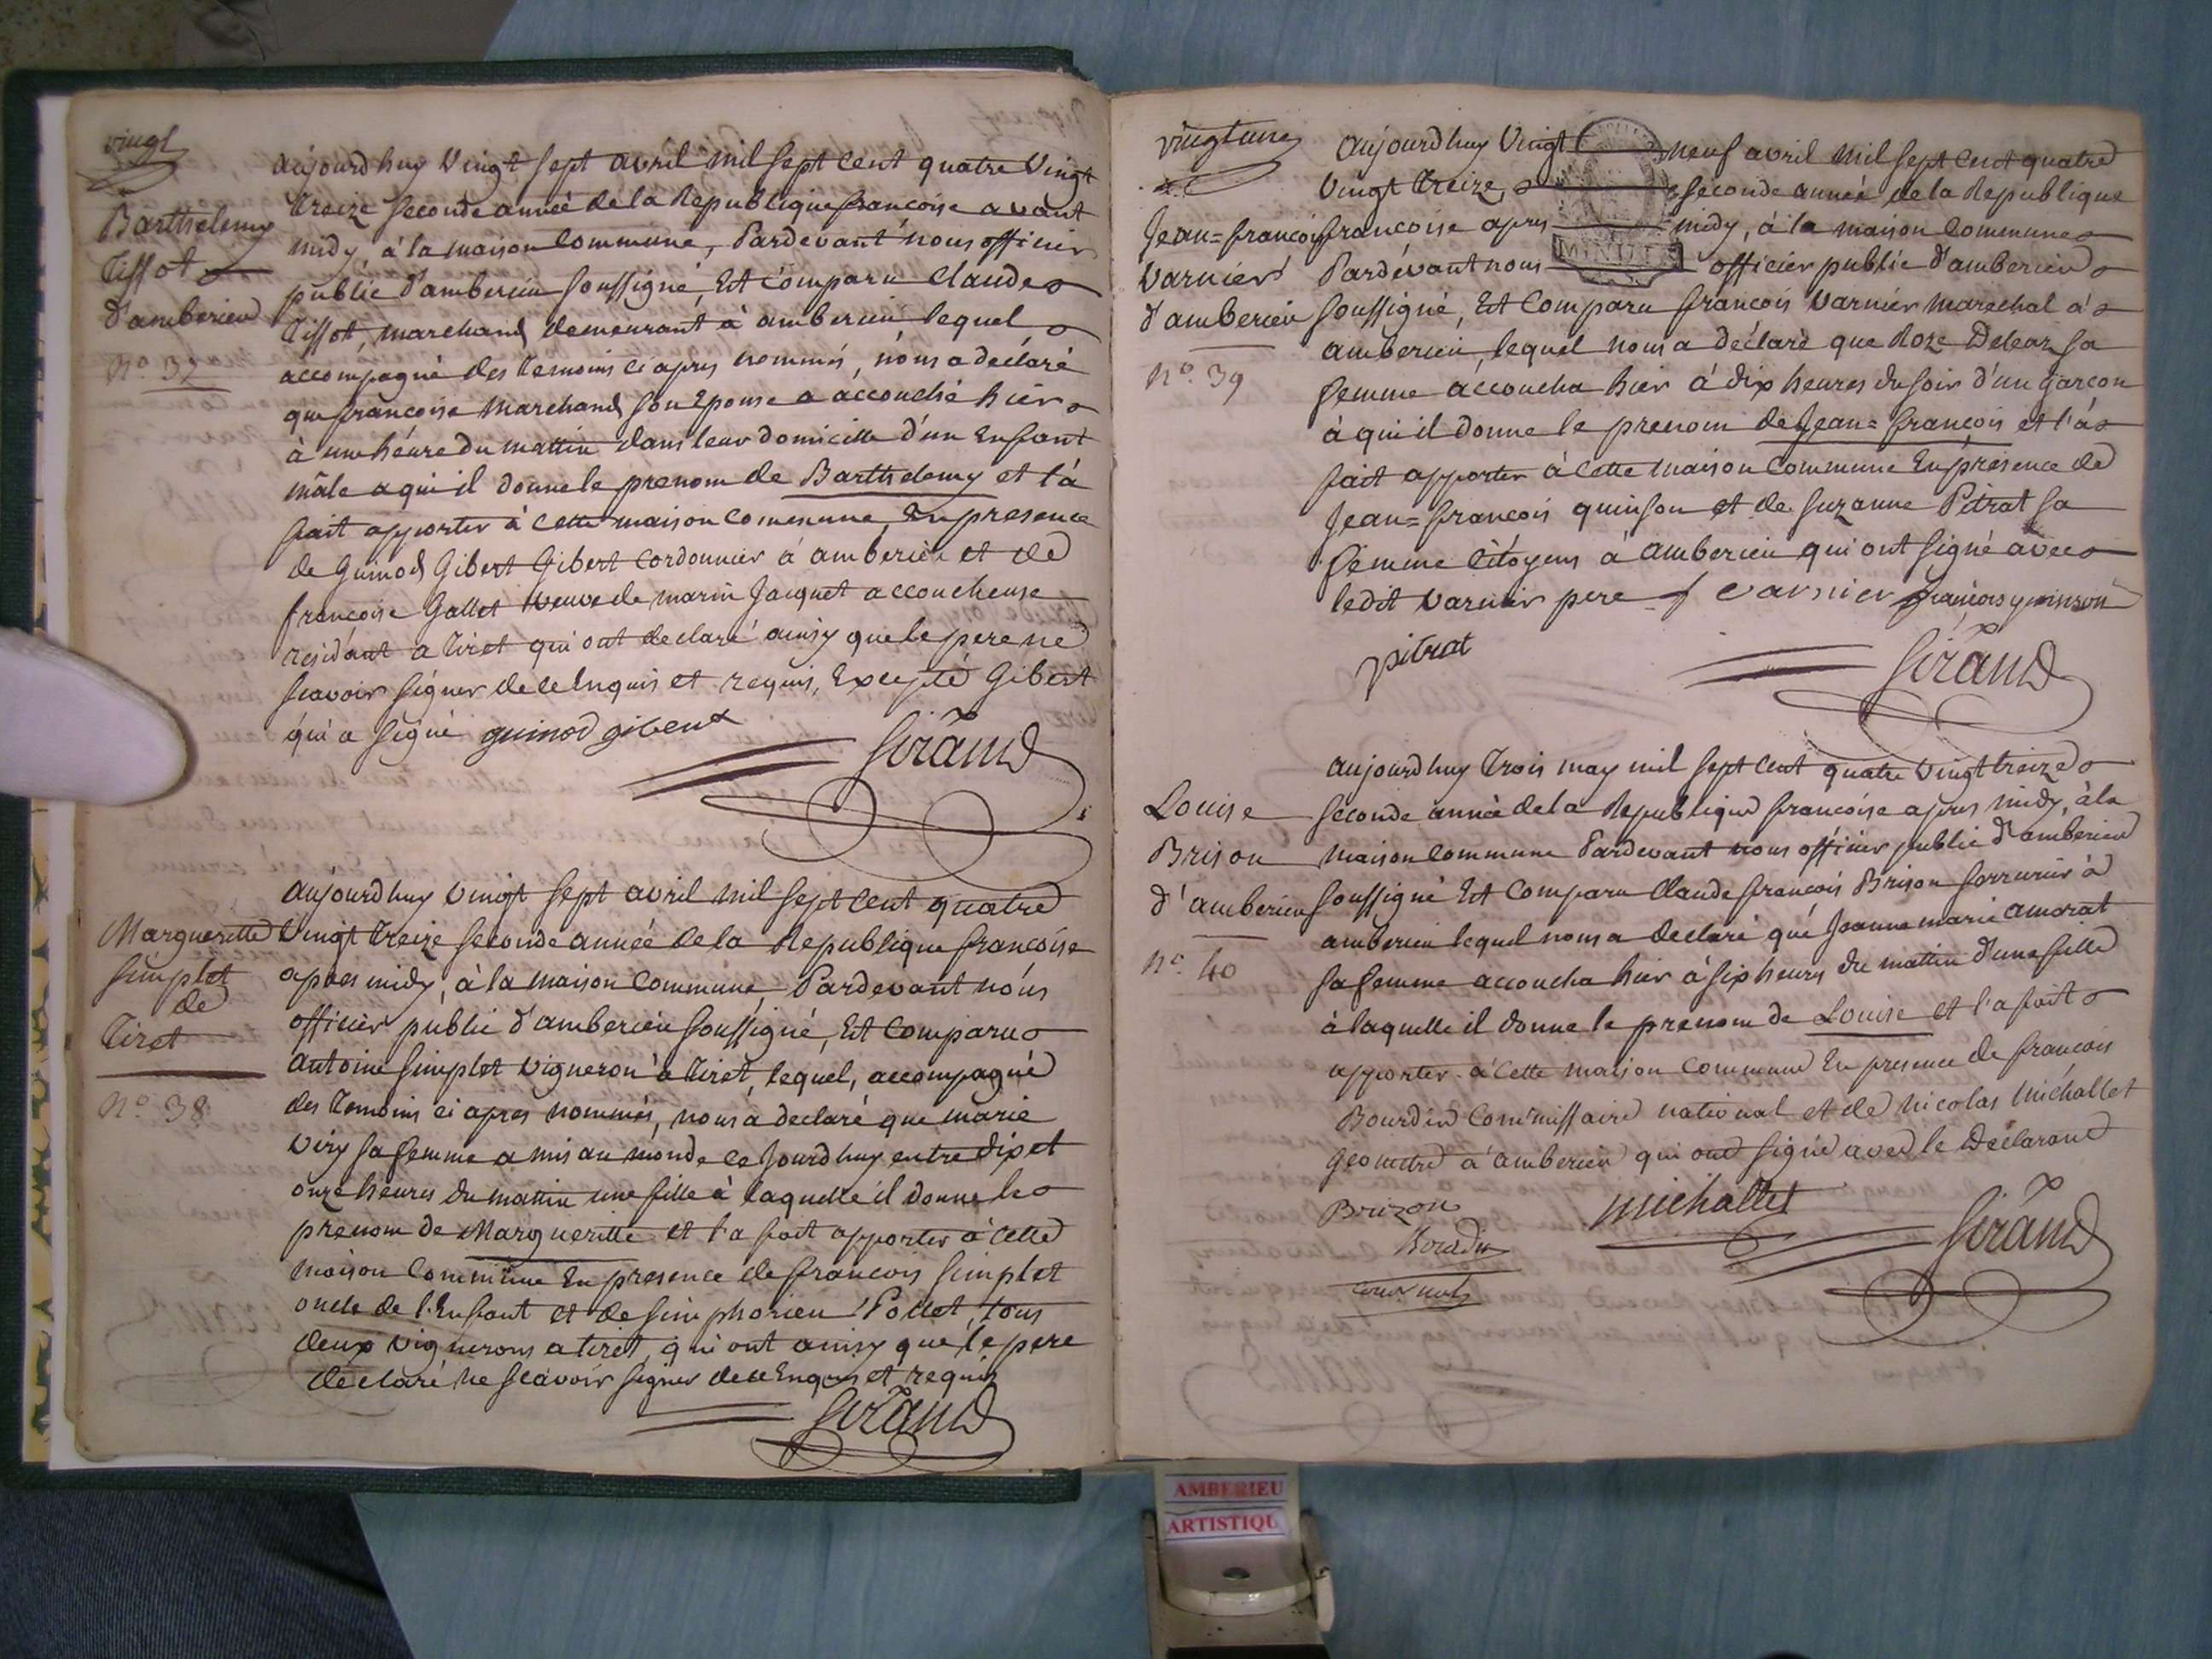 vingt
aujourdhuy vingt sept avril mil sept cent quatre vingt
treize seconde année de la Republique francoise avant
midy, à la maison commune, Pardevant nous officier
public d'amberieu soussigné, Est comparu claude
Tissot, marchand demeurant à amberieu lequel
accompagné des temoins ci apres nommés, nous a declaré
que francoise marchand son Epouse a accouché hier
à une heure du mattin dans leur domicille d'un Enfant
mâle a qui il donne le prenom de Barthelemy et l'à
fait apporter à cette maison commune, En presence
de Guinod Gibert Gibert cordonnier à amberieu et de
francoise Gallet veuve de marin Jacquet accoucheuse
residant a Tiret qui ont declaré ainsy que le pere ne
scavoir signer de ce Enquis et requis, Excepté Gibert
qui a signé guinod giber
Sirand
Barthelemy
Tissot
d'amberieu
N° 37
aujourdhuy vingt sept avril mil sept cent quatre
vingt treize seconde année de la Republique francoise
apres midy, à la maison commune, Pardevant nous
officier public d'amberieu soussigné, Est comparu
antoine simplet vigneron à Tiret, lequel, accompagné
des temoins ci apres nommés, nous a declaré que marie
viry sa femme a mis au monde ce jourd'huy entre dix et
onze heures du mattin une fille à laquelle il donne le
prenom de Margueritte et l'a fait apporter à cette
maison commune En presence de francois simplet
oncle de l'Enfant et de simphorien Pollet, tous
deux vignerons a tiret, qui ont ainsy que le pere
declaré ne scavoir signer de ce Enquis et requis
Sirand
Margueritte
simplet
de
Tiret
N° 38
vingt une
aujourdhuy vingt neuf avril mil sept cent quatre
vingt treize, seconde année de la Republique
francoise apres midy, à la maison commune
Pardevant nous officier public d'amberieu
soussigné, Est comparu francois varnier marechal à
amberieu, lequel nous a declaré que Roze Deleaz sa
femme accoucha hier à dix heures du soir d'un garcon
à qui il donne le prenom de Jean=francois et l'à
fait apporter à cette maison commune En presence de
Jean=francois quinson et de suzanne Pitrat sa
femme citoyens à amberieu qui ont signé avec
ledit varnier pere f varnier françois quinson
pitrat
Sirand
Jean=francois
varnier
d'amberieu
N° 39
MINUTE
aujourdhuy trois may mil sept cent quatre vingt treize
seconde année de la Republique francoise apres midy, à la
maison commune Pardevant nous officier public d'amberieu
soussigné Est comparu claude francois Brison serrurier à
amberieu lequel nous a declaré que Jeanne marie amorat
sa femme accoucha hier à six heures du mattin d'une fille
à laquelle il donne le prenom de Louise et l'a fait
apporter à cette maison commune En presence de francois
Bourdin commissaire national et de nicolas michallet
geometre à amberieu qui ont signé avec le declarant
Brizon
michallet
Bourdin
Sirand
Louise
Brison
d'amberieu
N° 40
AMBERIEU
ARTISTIQU